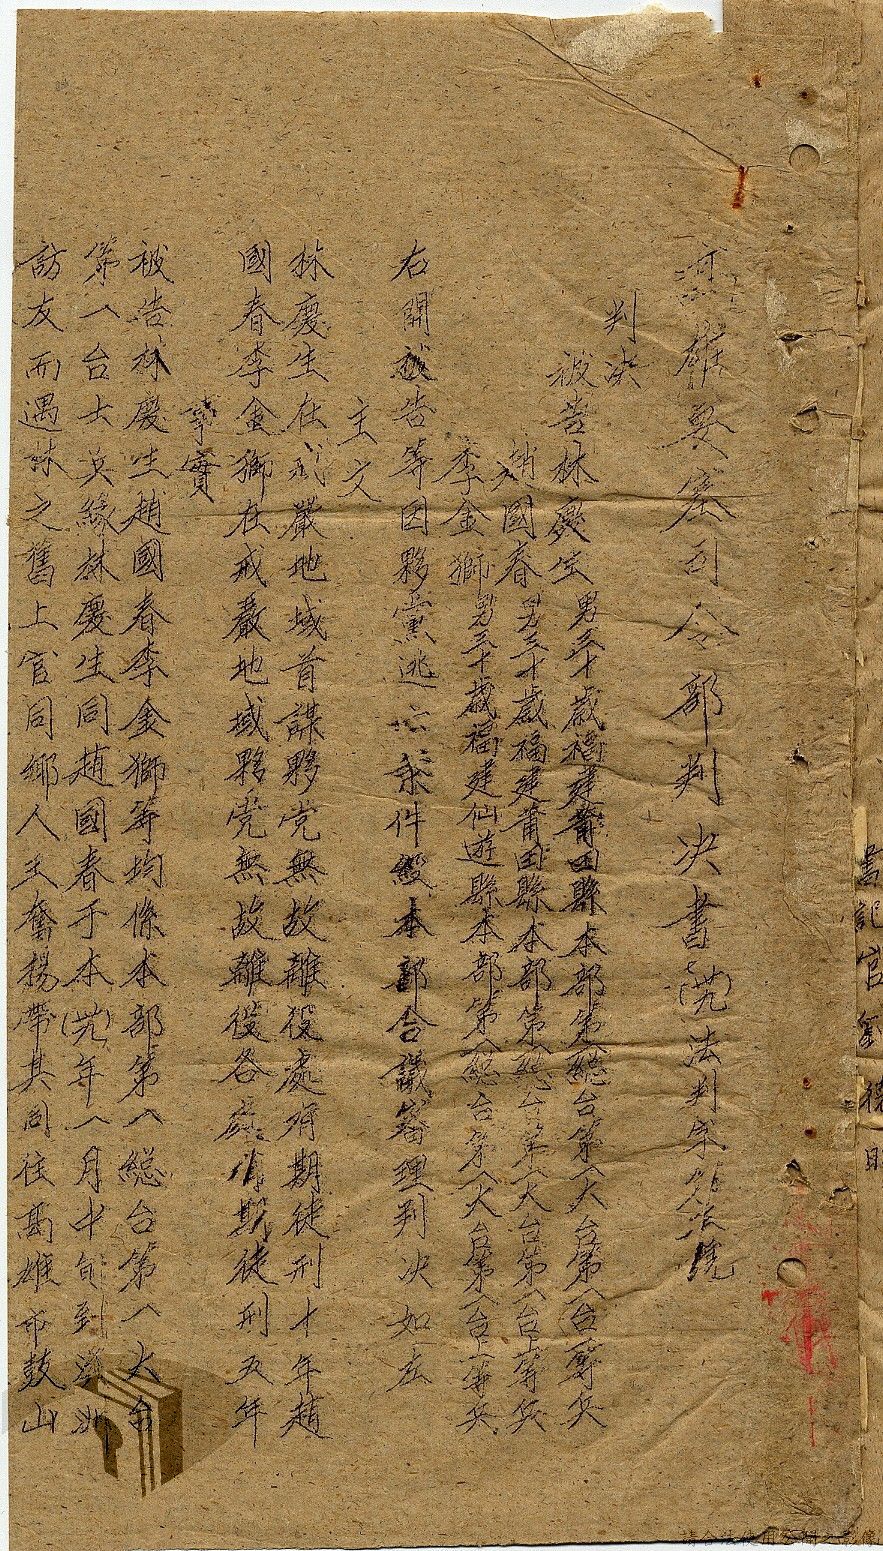 高雄要塞司令部判決書(卅)法判字第 號
判決
被告林慶生 男三十歲福建莆田縣本部第八總台第八大台第八台一等兵
趙國春 男三十歲福建莆田縣本部第八總台第八大台第八台上等兵
李金獅 男三十歲福建仙遊縣本部第八總台第八大台第八台上等兵
右開被告等因夥黨逃亡案件經本部合議審理判決如左
主文
林慶生在戒嚴地域首謀夥党無故離役處有期徒刑十年趙
國春李金獅在戒嚴地域夥党無故離役各處有期徒刑五年
事實
被告林慶生趙國春李金獅等均係本部第八總台第八大台
第八台士兵緣林慶生同趙國春于本(卅)年八月中旬到
訪友而遇林之舊上官同鄉人王奮揚帶其同往高雄市鼓山
書記官 德